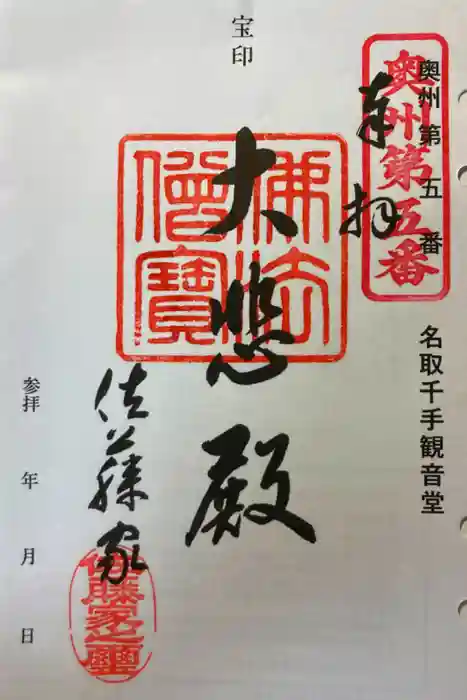 奥州第五番
奥州第五番
名取千手観音堂
奉拝
宝印
大悲殿
佛法僧寳
佐藤家
佐藤家之璽
参拝　年　月　日